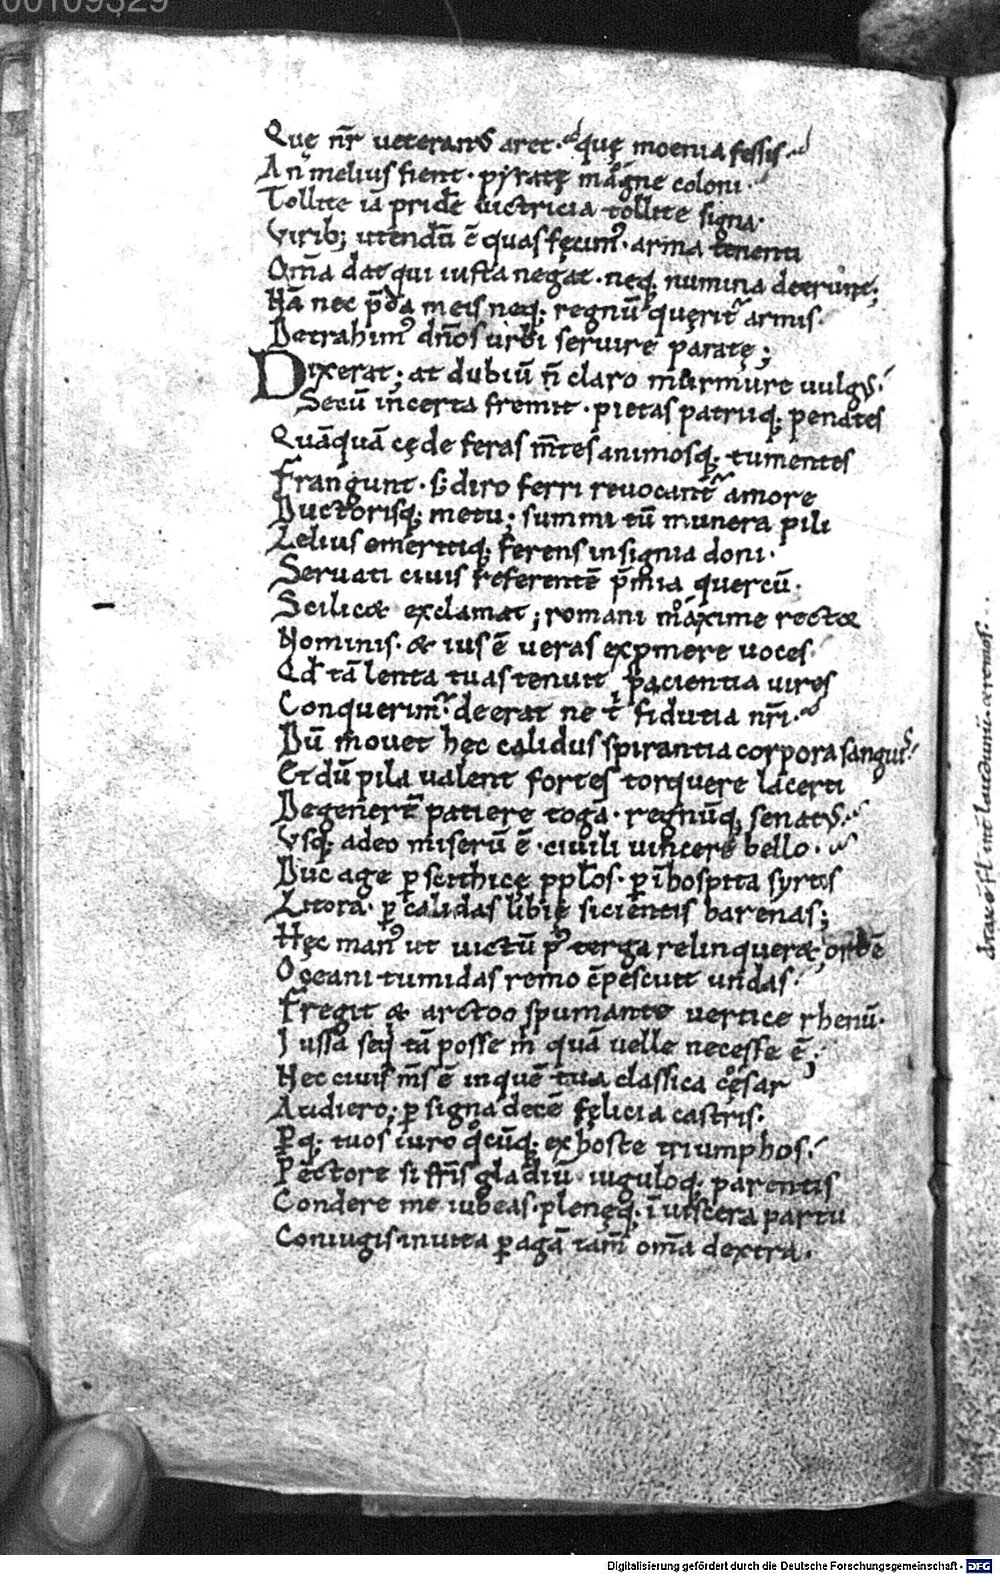 00109329
Quę nr̄ ueteranus aret· quę moenia fessis·
An melius fient· pyratę magne coloni·
Tollite iā pridē uictricia tollite signa·
Virib; utendū ē quas fecim᾽· arma tenenti
Om̄a dat qui iusta negat· neq; numina deerunt;
Nā nec p̄da meis neq; regnū querit᾽ armis·
Detrahim᾽ dn̄os urbi seruire paratę;
Dixerat; at dubiū n̄ claro murmure uulgus
Secū incerta fremit· pietas patriiq; penates
Quāquā cęde feras m̄tes animosq; tumentes
Frangunt· s; diro ferri reuocant᾽ amore
Ductorisq; metu; summi tū munera pili
Lelius emeritiq; ferens insignia doni·
Seruati ciuis referentē p̄mia quercū·
Scilicet exclamat; romani maxime rector
Nominis· & ius ē ueras exp̄mere uoces·
Qd̄ tā lenta tuas tenuit paciencia uires
Conquerim᾽· deerat ne t᾽ fidutia nr̄i·
Dū mouet hęc calidus spirantia corpora sanguis
Et dū pila ualent fortes torquere lacerti
Degenerē patiere togā· regnūq; senatus·
Vsq; adeo miserū ē· ciuili uincere bello·
Duc age ꝑ scithicę ppłos· ꝑ īhospita syrtos
Littora· ꝑ calidas libię sicientis harenas;
Hęc man᾽ ut uictū p᾽ terga relinqueret orbē
Oceani tumidas remo cōpescuit undas·
Fregit & arctoo spumante uertice rhenū·
Iussa seq̄ tā posse m̄ quā uelle necesse ē;
Nec ciuis m̄s ē inquē tua classica cęsar
Audiero; ꝑ signa decē fęlicia castris·
Ꝑq; tuos iuro q̊cūq; ex hoste triumphos·
Pectore si fr̄is gladiū iuguloq; parentis
Condere me iubeas· plenęq; ī uiscera partu
Coniugis inuita ꝑagā tam̄ om̄a dextra·
Digitalisierung gefördert durch die Deutsche Forschungsgemeinschaft - DFG